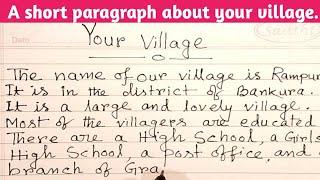 A short paragraph about your village.
Date
Your Village
The name of our village is Rampur
It is in the district of Bankura.
It is a large and lovely village.
Most of the villagers are educated
There are a High School, a Girls
High School, a post office, and a
branch of Gra